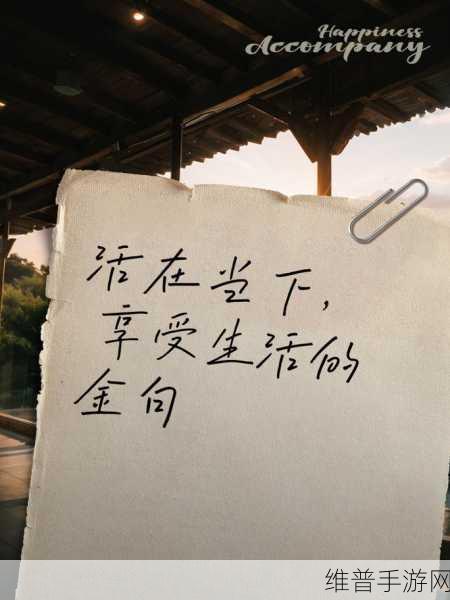 Happiness
Accompany
活在当下,
享受生活的
金句
维普手游网